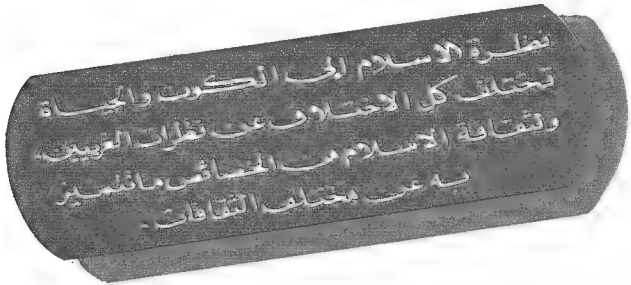 نظرة الاسلام إلى الكون والحياة
تختلف كل الاختلاف عن نظرات الغربيين،
ولثقافة الاسلام من الخصائص ما تتميز
به عن مختلف الثقافات.